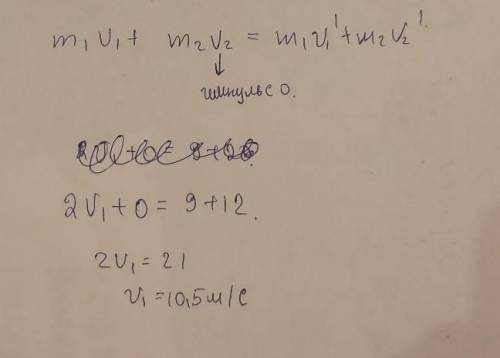 m₁ v₁ + m₂ v₂ = m₁ v₁' + m₂ v₂'
↓
импульс 0.
2v₁ + 0 = 9 + 12.
2v₁ = 21
v₁ = 10,5 м/с